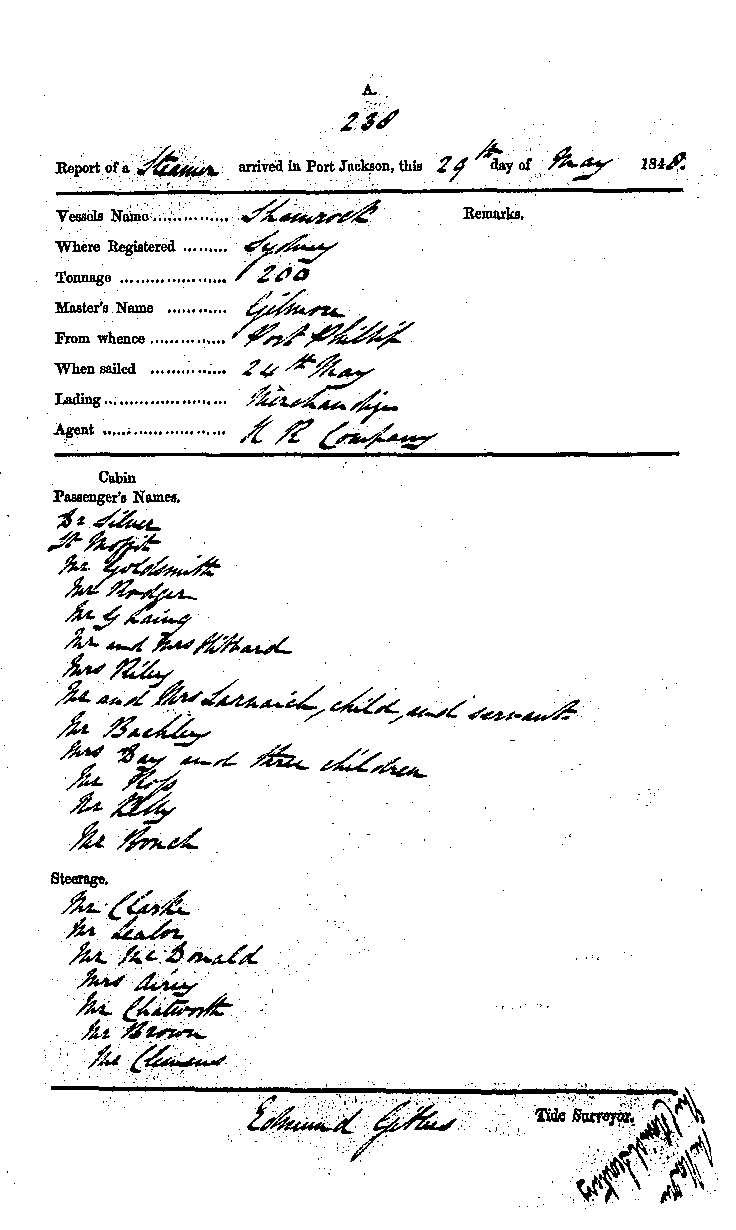 A.
238
Report of a Steamer arrived in Port Jackson, this 29th day of May 1848.
Vessels Name ............... Shamrock Remarks.
Where Registered ......... Sydney
Tonnage ..................... 200
Master's Name ............ Gilmore
From whence ............... Port Phillip
When sailed ............... 24th May
Lading ........................ Merchandize
Agent ........................ H R Company
Cabin
Passenger's Names.
Dr Silver
Lt Moffit
Mr Goldsmith
Mr Rodger
Mr G Laing
Mr and Mrs Hibbard
Mrs Riley
Mr and Mrs Larnaich, child, and servant
Mr Buchley
Mrs Day and three children
Mr Ross
Mr Kelly
Mr Bonch
Steerage.
Mr Clarke
Mr Lealor
Mr McDonald
Mrs Airey
Mr Chatworth
Mr Brown
Mr Clemens
Edmund Gibbes Tide Surveyor.